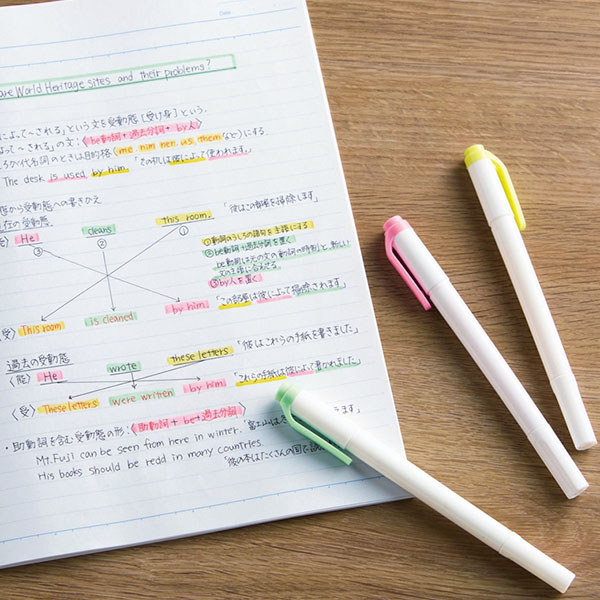 Date
are World Heritage sites and their problems?
によって~される」という文を受動態 [受け身] という.
って~される」の文: 〈be動詞+過去分詞+by人〉
代名詞のときは目的格 (me him her us them など) にする
The desk is used by him. 「その机は彼によって使われます.」
態から受動態への書きかえ
在の受動態
「彼はこの部屋を掃除します」
He cleans this room.
③ ② ①
①動詞のうしろの語句を主語にする
②be動詞+過去分詞を置く
be動詞はその文の動詞の時制と新しい
文の主語に合わせる.
③by人を置く
(受) This room is cleaned by him. 「この部屋は彼によって掃除されます」
過去の受動態
(能) He wrote these letters 「彼はこれらの手紙を書きました」
(受) These letters were written by him 「これらの手紙は彼によって書かれました.」
・助動詞を含む受動態の形: 〈助動詞+be+過去分詞〉
Mt.Fuji can be seen from here in winter. 「富士山は
えます」
His books should be read in many countries.
「彼の本はたくさんの国で読